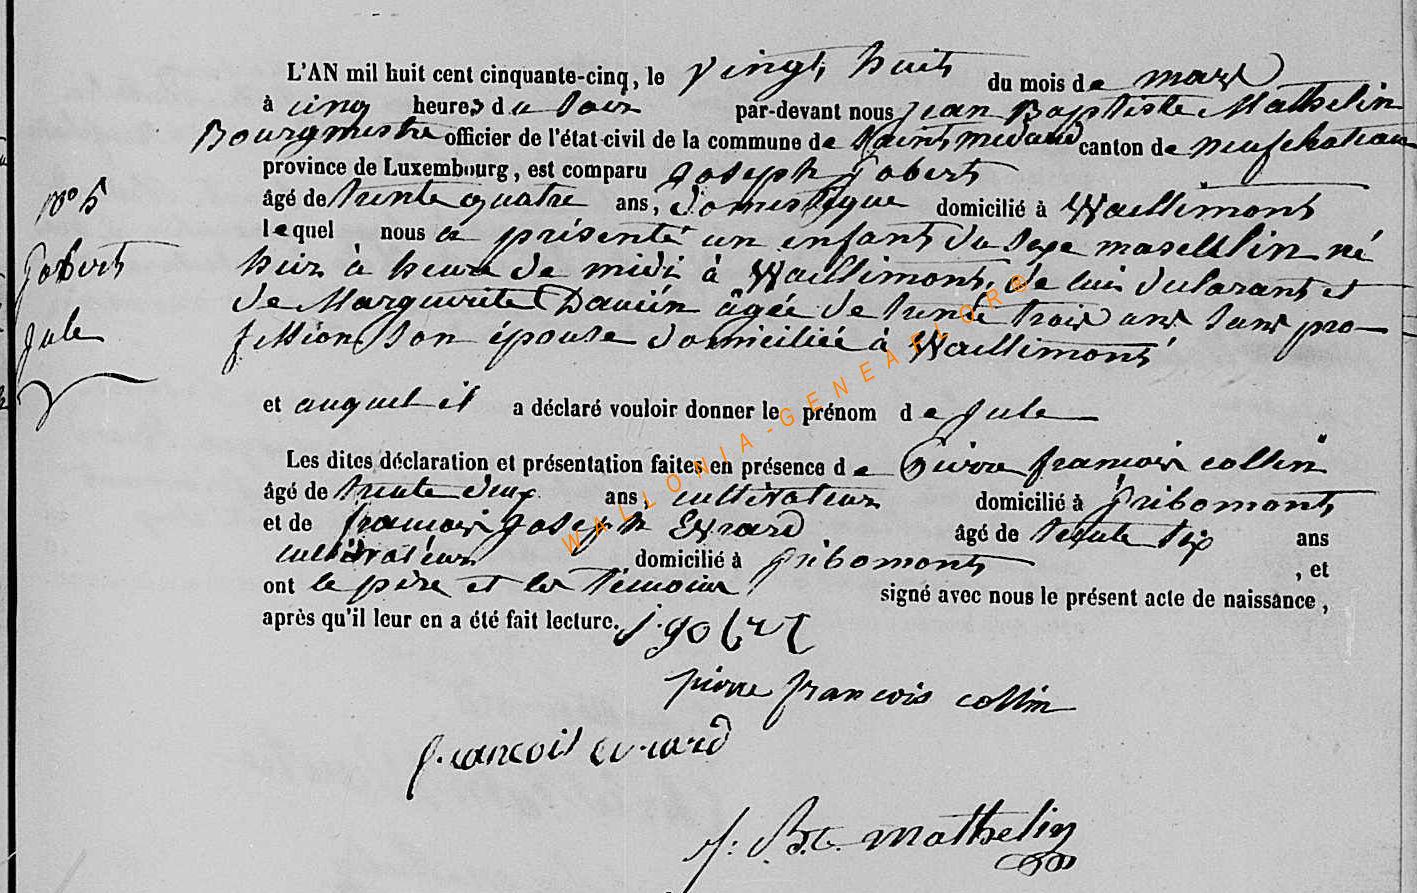 L'AN mil huit cent cinquante-cinq, le vingt huit du mois de mars
à cinq heures du soir par-devant nous Jean Baptiste Mathelin
Bourgmestre officier de l'état-civil de la commune de Saint medard canton de neufchateau
province de Luxembourg, est comparu Joseph Gobert
âgé de trente quatre ans, Domestique domicilié à Waillimont
lequel nous a présenté un enfant du Sexe masculin né
hier à heure de midi à Waillimont, de lui déclarant et
de Marguerite âgée de trente trois ans sans pro-
fession, son épouse domiciliée à Waillimont
et auquel il a déclaré vouloir donner le prénom de Jule
Les dites déclaration et présentation faites en présence de Pierre françois collin
âgé de trente deux ans, cultivateur domicilié à gribomont
et de françois Joseph Evrard âgé de trente six ans
cultivateur domicilié à gribomont , et
ont le père et les témoins signé avec nous le présent acte de naissance,
après qu'il leur en a été fait lecture. J. gobert
pierre françois collin
françois evrard
J. Bte mathelin
N° 5
Gobert
Jule
WALLONIA-GENEAFLORE